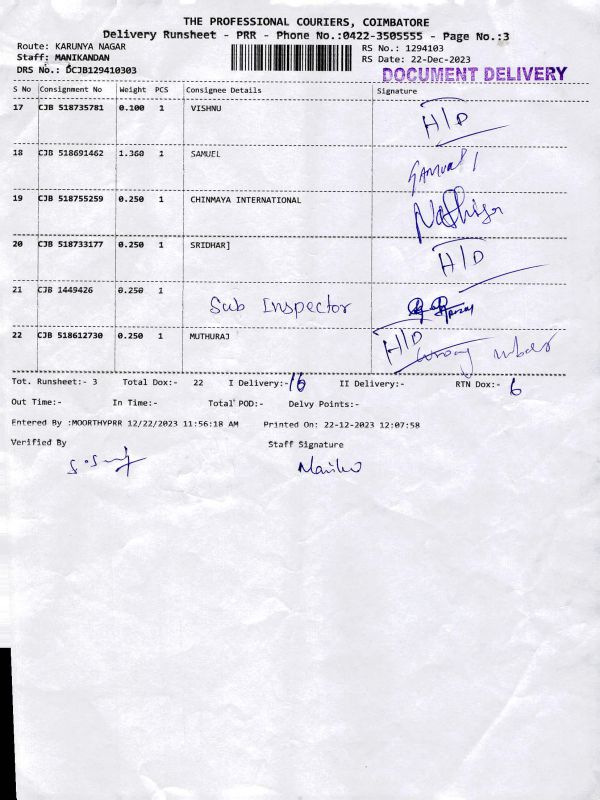 THE PROFESSIONAL COURIERS, COIMBATORE
Delivery Runsheet - PRR - Phone No.:0422-3505555 - Page No.:3
Route: KARUNYA NAGAR RS No.: 1294103
Staff: MANIKANDAN RS Date: 22-Dec-2023
DRS No.: DCJB129410303 DOCUMENT DELIVERY
S No Consignment No Weight PCS Consignee Details Signature
17 CJB 518735781 0.100 1 VISHNU H/D
18 CJB 518691462 1.360 1 SAMUEL SAMUEL
19 CJB 518755259 0.250 1 CHINMAYA INTERNATIONAL
20 CJB 518733177 0.250 1 SRIDHAR] H/D
21 CJB 1449426 0.250 1 Sub Inspector
22 CJB 518612730 0.250 1 MUTHURAJ H/D wrong number
Tot. Runsheet:- 3 Total Dox:- 22 I Delivery:- 16 II Delivery:- RTN Dox:- 6
Out Time:- In Time:- Total POD:- Delvy Points:-
Entered By :MOORTHYPRR 12/22/2023 11:56:18 AM Printed On: 22-12-2023 12:07:58
Verified By Staff Signature